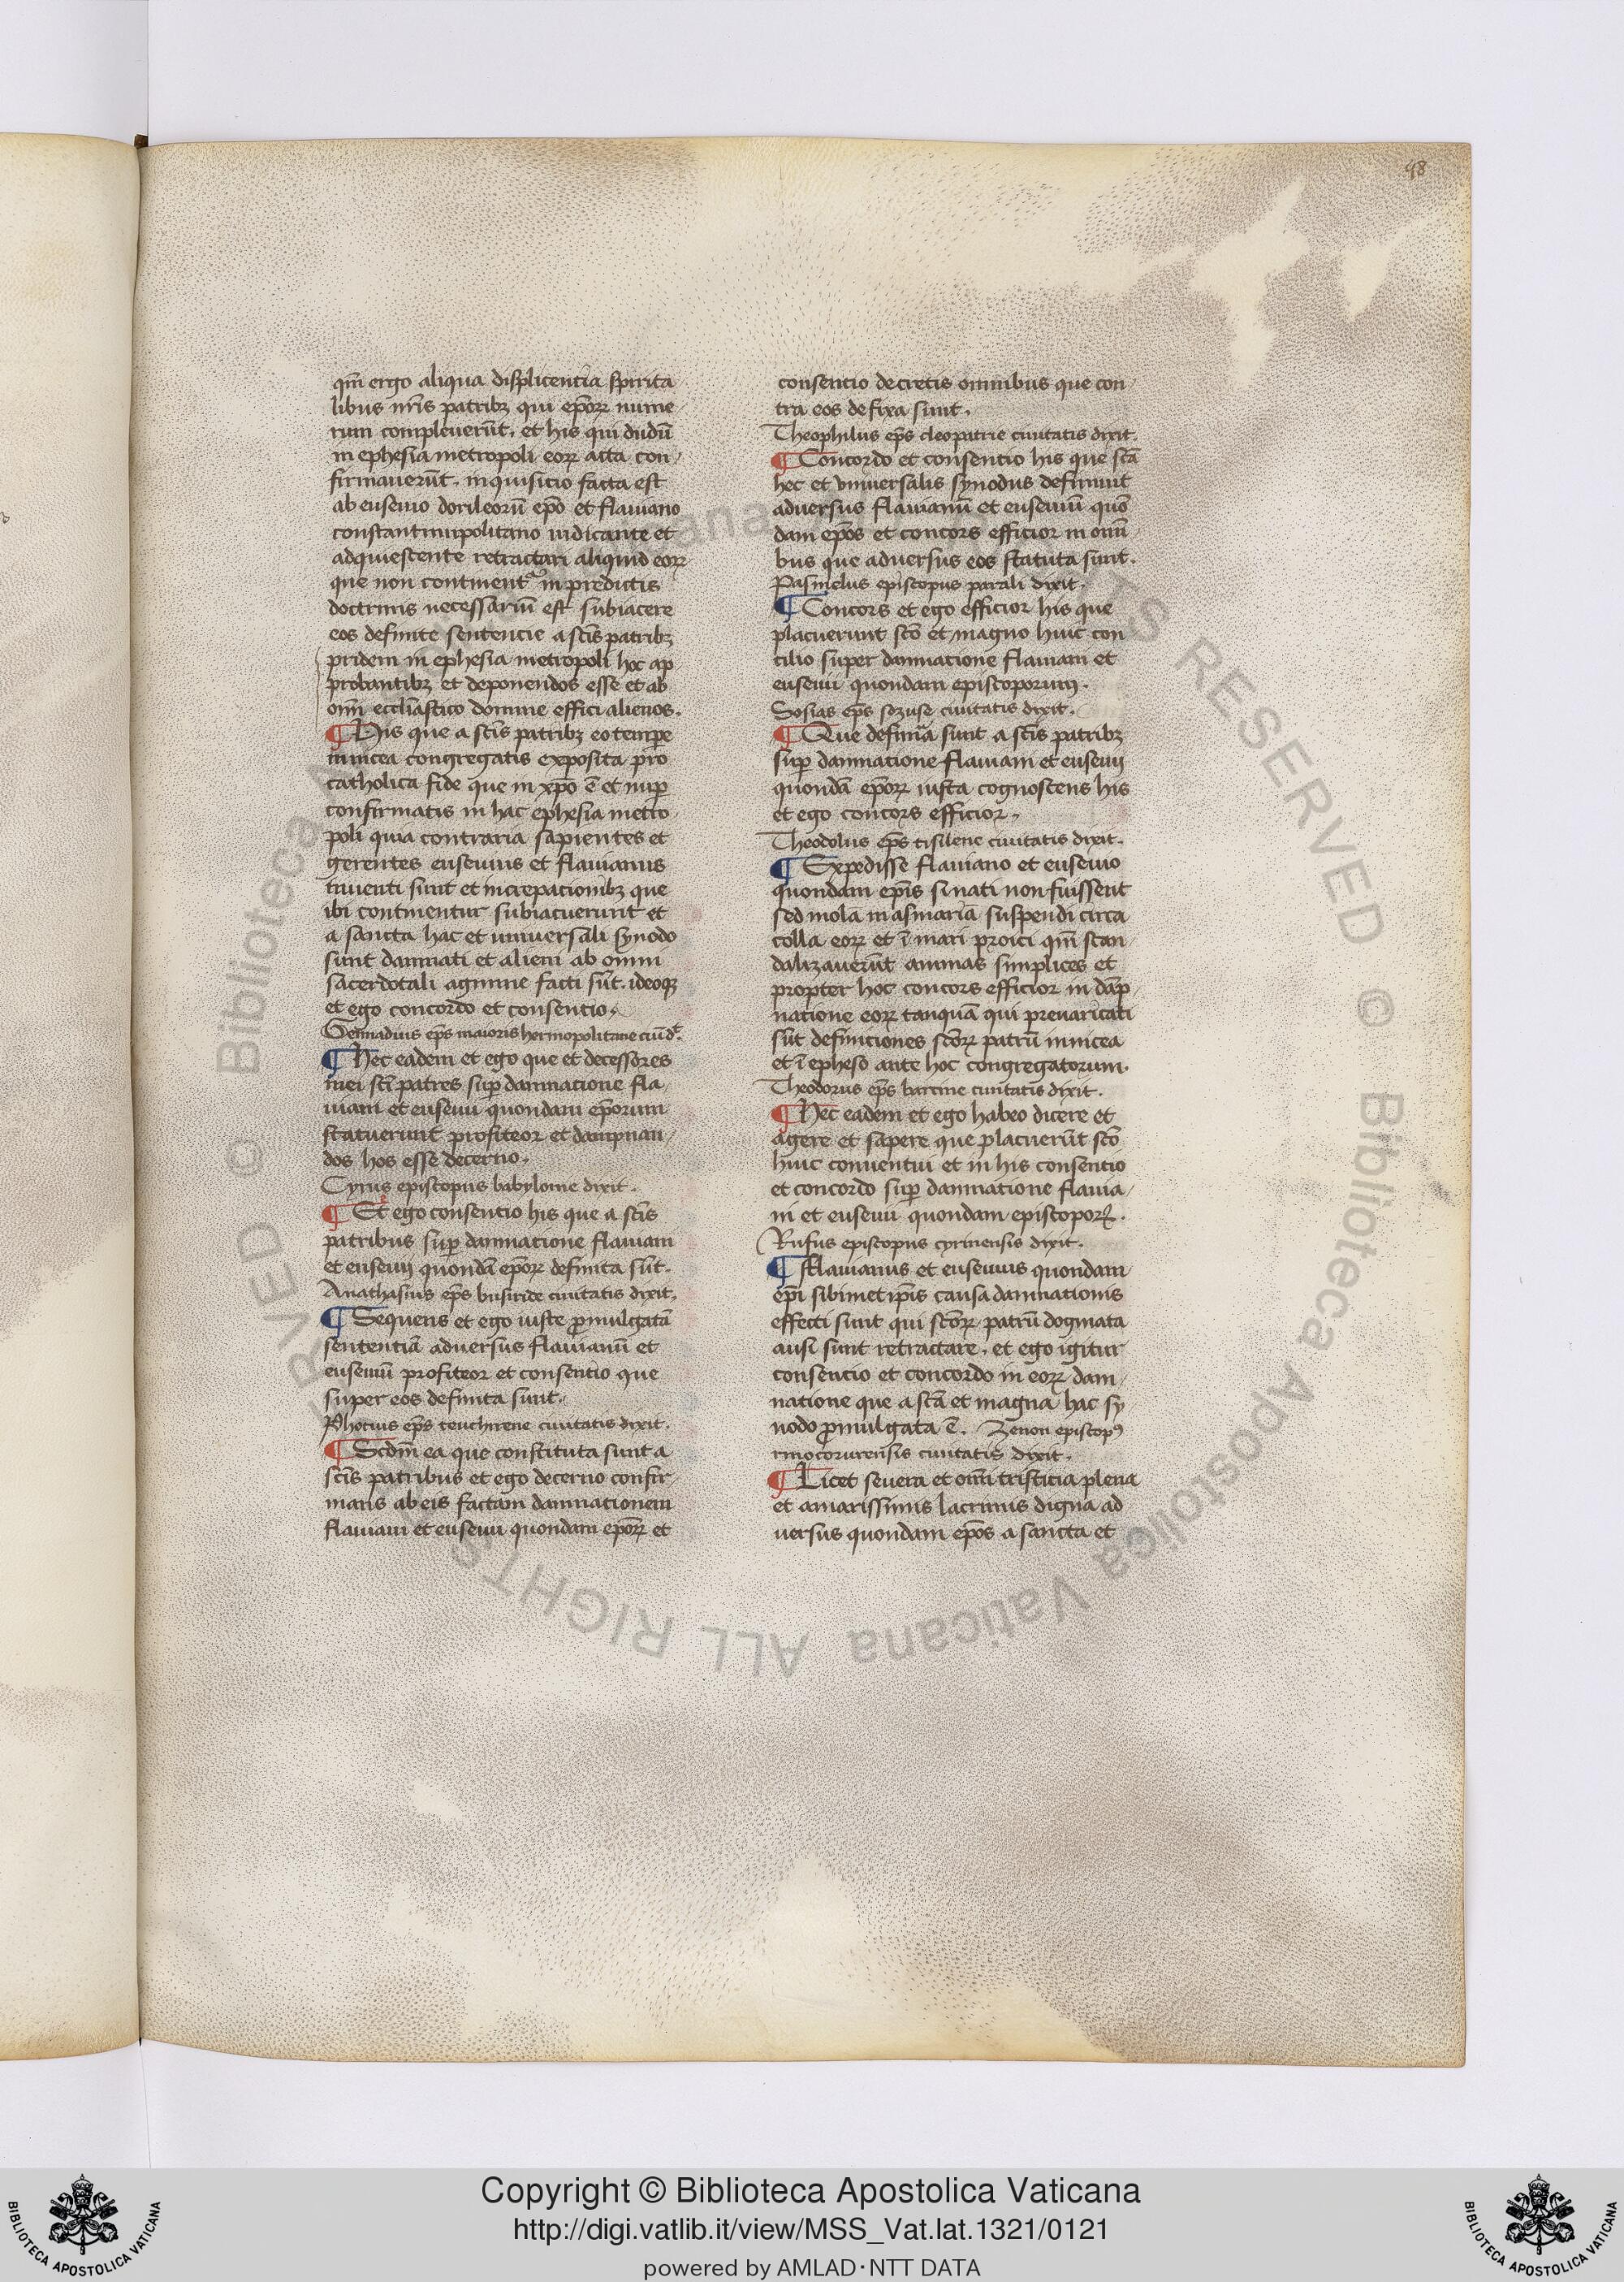 48
qm̄ ergo aliqua displicentia spirita
libus nr̄is patribꝫ qui ep̄oꝝ nume
rum compleuerūt. et his qui dudū
in ephesia metropoli eoꝝ acta con
firmauerūt. inquisicio facta est
ab eusenio dorileorū ep̄o et flauiano
constantinupolitano iudicante et
adquiescente retractari aliquid eoꝝ
que non continent᷑ in predictis
doctrinis necessariū est subiacere
eos definite sentencie a sc̄is patribꝫ
pridem in ephesia metropoli hoc ap
probantibꝫ et deponendos esse et ab
om̄i eccl̄iastico domine effici alienos.
¶ His que a sc̄is patribꝫ eo temꝑe
in nicea congregatis exposita pro
catholica fide que in xp̄o ē et nuꝑ
confirmatis in hac ephesia metro
poli quia contraria sapientes et
gerentes eusenius et flauianus
inuenti sunt et increpacionibꝫ que
ibi continentur subiacuerunt et
a sancta hac et uniuersali synodo
sunt damnati et alieni ab omni
sacerdotali agmine facti sūt. ideoqꝫ
et ego concordo et consencio.
Gennadius ep̄s maioris hermopolitane ciui̅ d̅t.
¶ Hec eadem et ego que et decessores
mei sc̄i patres suꝑ damnatione fla
uiani et eusenii quondam ep̄orum
statuerunt profiteor et dampnan
dos hos esse decerno.
Cyrus episcopus babylonie dixit.
¶ Et ego consencio his que a sc̄is
patribus suꝑ damnatione flauiani
et eusenij quondā ep̄oꝝ definita sūt.
Anathasius ep̄s busiride ciuitatis dixit.
¶ Sequens et ego iuste ꝓmulgatā
sententiā aduersus flauianū et
eusenīu profiteor et consentio que
super eos definita sunt.
Photius ep̄s teuchirene ciuitatis dixit.
¶ Scdm̄ ea que constituta sunt a
sc̄is patribus et ego decerno confir
mans ab eis factam damnationem
flauiani et eusenii quondam ep̄oꝝ et
consentio decretis omnibus que con
tra eos defixa sunt.
Theophilus ep̄s cleopatrie ciuitatis dixit.
¶ Concordo et consentio his que sc̄a
hec et vniuersalis synodus definiuit
aduersus flauianū et eusenīu quō
dam ep̄os et concors efficior in omī
bus que aduersus eos statuta sunt.
Pasmelus episcopus parali dixit.
¶ Concors et ego efficior his que
placuerunt sc̄o et magno huic con
cilio super damnatione flauiani et
eusenii quondam episcoporum.
Sosias ep̄s sozuse ciuitatis dixit.
¶ Que definita sunt a sc̄is patribꝫ
suꝑ damnatione flauiani et eusenij
quondā ep̄oꝝ iusta cognoscens his
et ego concors efficior.
Theodolus ep̄s tisilene ciuitatis dixit.
¶ Expedisse flauiano et eusenio
quondam ep̄is si nati non fuissent
sed mola in asinaria suspendi circa
colla eoꝝ et ī mari proici qm̄ scan
dalizauerūt animas simplices et
propter hoc concors efficior in dāp
natione eoꝝ tanquā qui preuaricati
sūt definiciones sc̄oꝝ patrū in nicea
et ī epheso ante hoc congregatorum.
Theodorus ep̄s barcine ciuitatis dixit.
¶ Hec eadem et ego habeo dicere et
agere et sapere que placuerūt sc̄o
huic conuentui et in his consentio
et concordo suꝑ damnatione flauia
ni et eusenii quondam episcopoꝝ.
Rufus episcopus cyrinensis dixit.
¶ Flauianus et eusenius quondam
ep̄i sibimet ip̄is causa damnationis
effecti sunt qui sc̄oꝝ patrū dogmata
ausi sunt retractare. et ego igitur
consencio et concordo in eoꝝ dam
natione que a sc̄a et magna hac sy
nodo ꝓmulgata ē. Zenon episcopꝰ
rinocorurensis ciuitatis dixit.
¶ Licet seuera et om̄i tristicia plena
et amarissimis lacrimis digna ad
uersus quondam ep̄os a sancta et
Copyright © Biblioteca Apostolica Vaticana
http://digi.vatlib.it/view/MSS_Vat.lat.1321/0121
powered by AMLAD·NTT DATA
BIBLIOTECA APOSTOLICA VATICANA
BIBLIOTECA APOSTOLICA VATICANA
© Biblioteca Apostolica Vaticana ALL RIGHTS RESERVED © Biblioteca Apostolica Vaticana ALL RIGHTS RESERVED